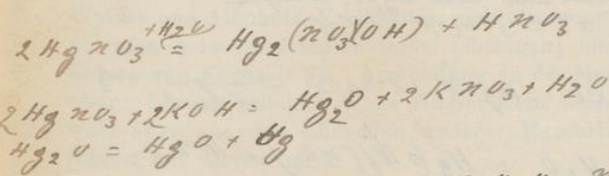 2HgNO3 +H2O = Hg2(NO3)(OH) + HNO3
2HgNO3 + 2KOH = Hg2O + 2KNO3 + H2O
Hg2O = HgO + Hg